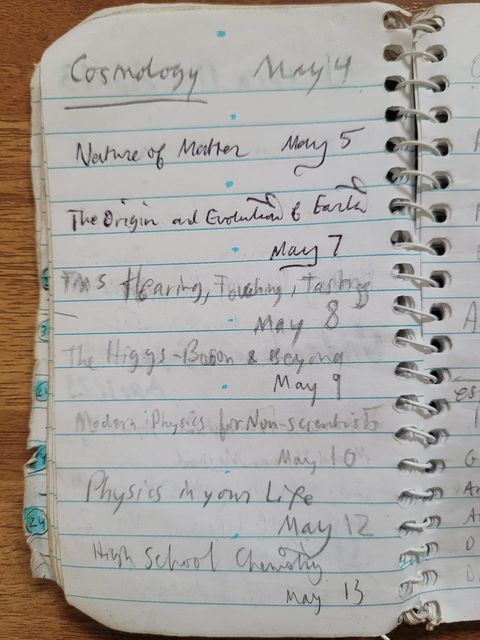 Cosmology May 4
Nature of Matter May 5
The Origin and Evolution of Earth
May 7
TMS Hearing, Touching, Tasting
May 8
The Higgs-Boson & Beyond
May 9
Modern Physics for Non-scientists
May 10
Physics in your Life
May 12
High School Chemistry
May 13
24